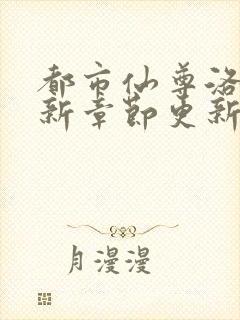 都市仙尊洛
新章節更新
月漫漫